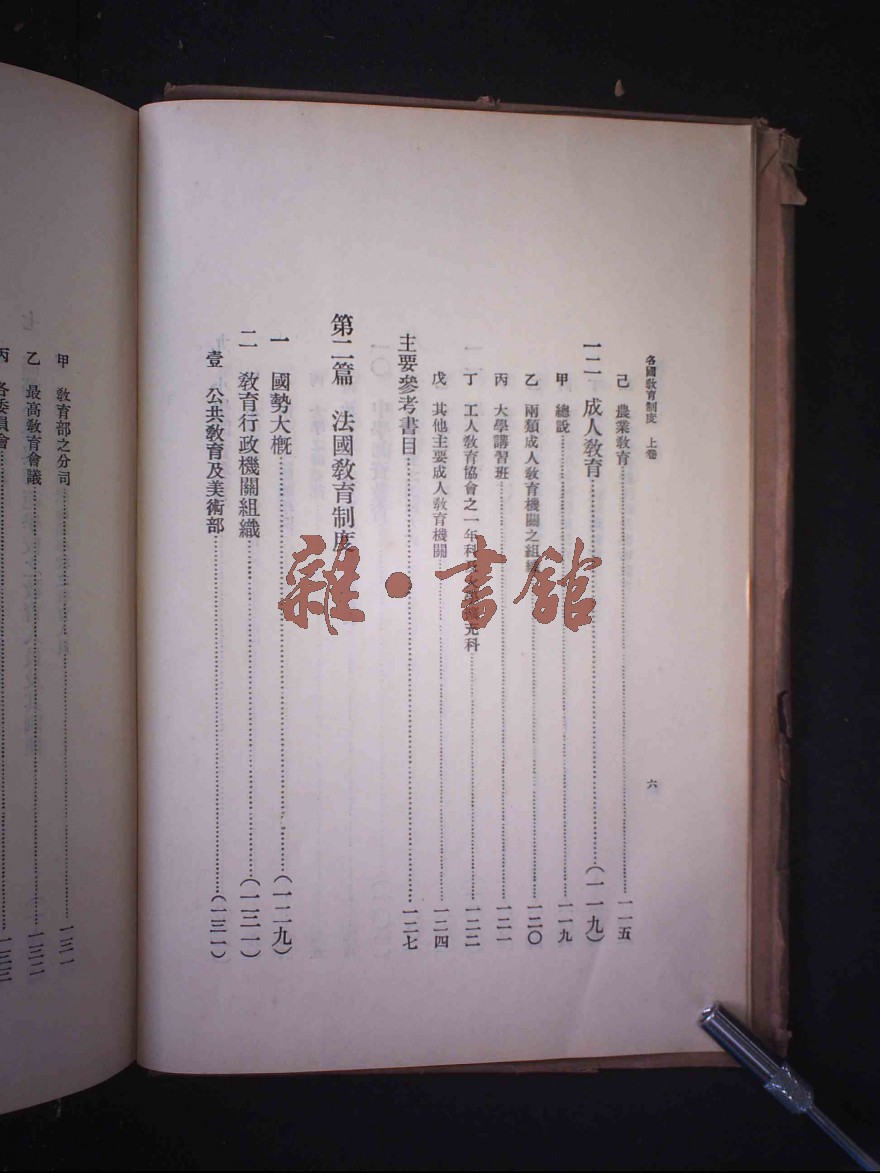 各國教育制度 上卷
六
己 農業教育 一一五
一二 成人教育 (一一九)
甲 總說 一一九
乙 兩類成人教育機關之組織 一二〇
丙 大學講習班 一二一
丁 工人教育協會之一年科 充科 一二二
戊 其他主要成人教育機關 一二四
主要參考書目 一二七
第二篇 法國教育制度
一 國勢大概 (一二九)
二 教育行政機關組織 (一三一)
壹 公共教育及美術部 (一三一)
甲 教育部之分司 一三一
乙 最高教育會議 一三二
丙 各委員會 一三三
雜·書館